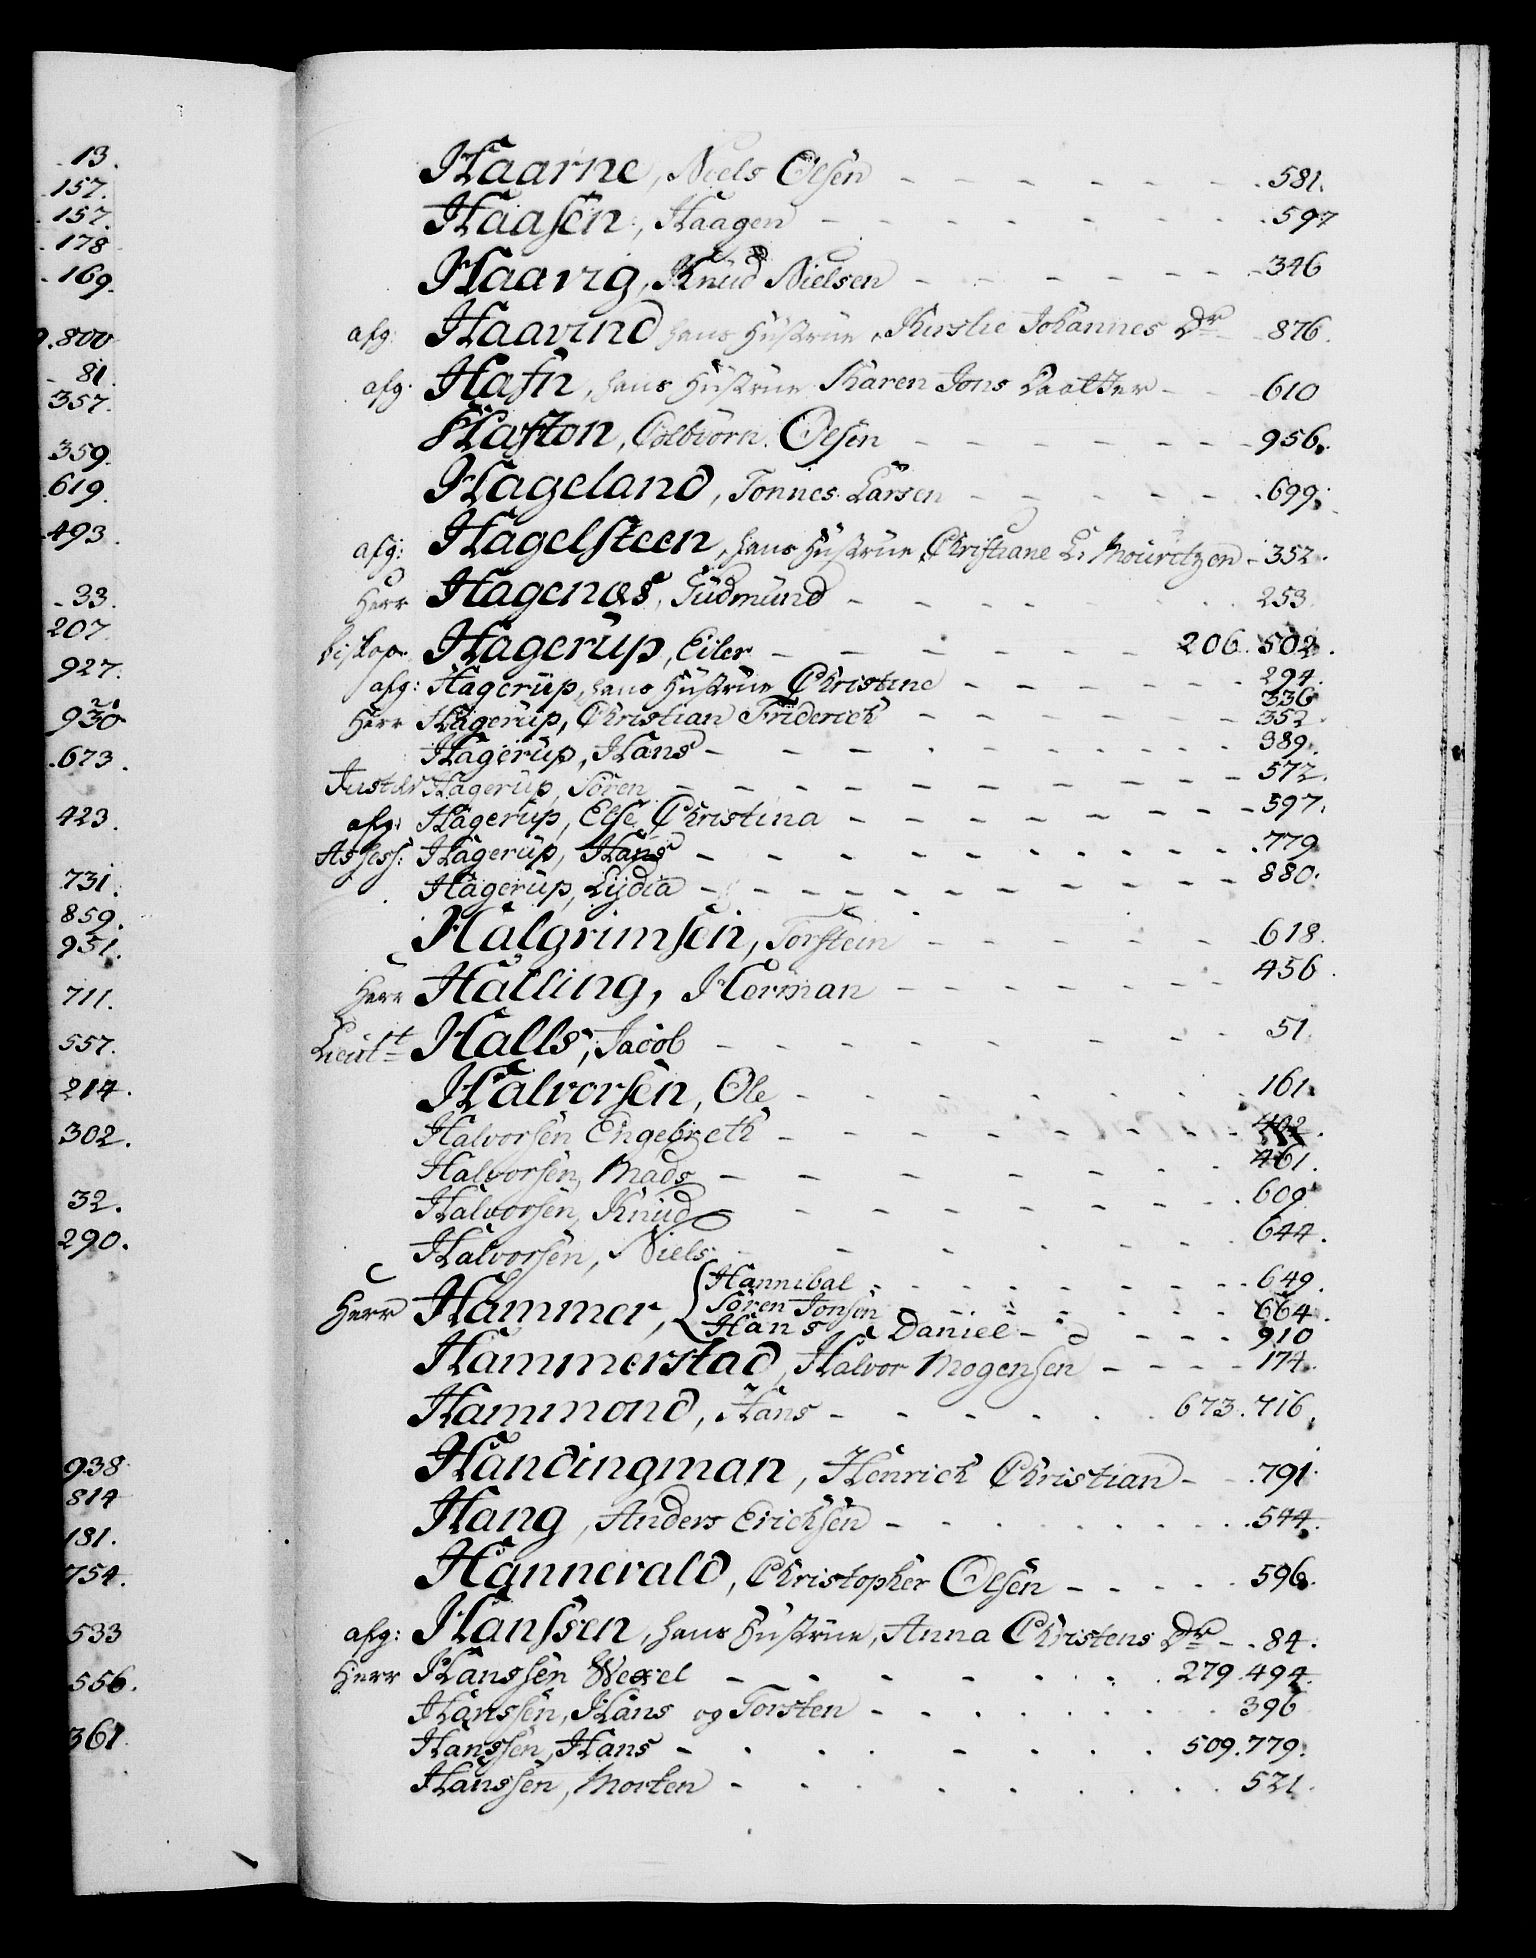 13.
157.
157.
178
169.
9.800
81.
357.
359.
619.
493.
33.
207.
927.
930
673.
423.
731.
859.
951.
711.
557.
214.
302.
32.
290.
938
814
181.
754.
533
556.
361.
Haarne, Niels Olsen - - - - - - 581.
Haasen, Haagen - - - - - - 597
Haavig, Knud Nielsen - - - - - - 346
afg: Haavind hans Hustrue, Kirstie Johannes Dr - 876.
afg. Hafn, hans Hustrue Karen Jons Daatter - - 610
Hafton, Colbiörn Olsen - - - - - - 956.
Hageland, Tonnes Larsen - - - - - 699.
afg: Hagelsteen, hans Hustrue Christiane L. Mouritzen - 352.
Herr Hagenæs, Gudmund - - - - - - 253
biskop Hagerup, Eiler - - - - - - 206. 502.
afg: Hagerup, hans Hustrue Christine - - - - 294. 336
Herr Hagerup, Christian Friderich - - - - - - 352
Hagerup, Hans - - - - - - - 389.
Hagerup, Sören - - - - - - - 572.
afg: Hagerup, Else Christina - - - - - - 597.
Assess: Hagerup, Hans - - - - - - - 779
Hagerup, Lydia - - - - - - - 880.
Halgrimsen, Torstein - - - - - - 618.
Herr Halling, Herman - - - - - - 456.
Lieut Halls, Jacob - - - - - - 51
Halvorsen, Ole - - - - - - 161.
Halvorsen Engebreth - - - - - - 402.
Halvorsen, Mads - - - - - - 461.
Halvorsen, Knud - - - - - - 609.
Halvorsen, Niels - - - - - - 644.
Hannibal - - - - - - 649.
Herr Hammer, { Sören Jonsen - - - - - - 664.
Hans Daniel - - - - 910
Hammerstad, Halvor Mogensen - - - - 174.
Hammond, Hans - - - - - - 673. 716.
Handingman, Henrich Christian - - 791.
Hang, Anders Erichsen - - - - - - 544.
Hannevald, Christopher Olsen - - - - - 596.
afg: Hanssen, hans Hustrue, Anna Christens Dr - - 84.
Herr Hanssen Wexel - - - - - - 279. 494.
Hanssen, Hans og Torsten - - - - - - 396
Hanssen, Hans - - - - - - 509. 779.
Hanssen, Morten - - - - - - 521.